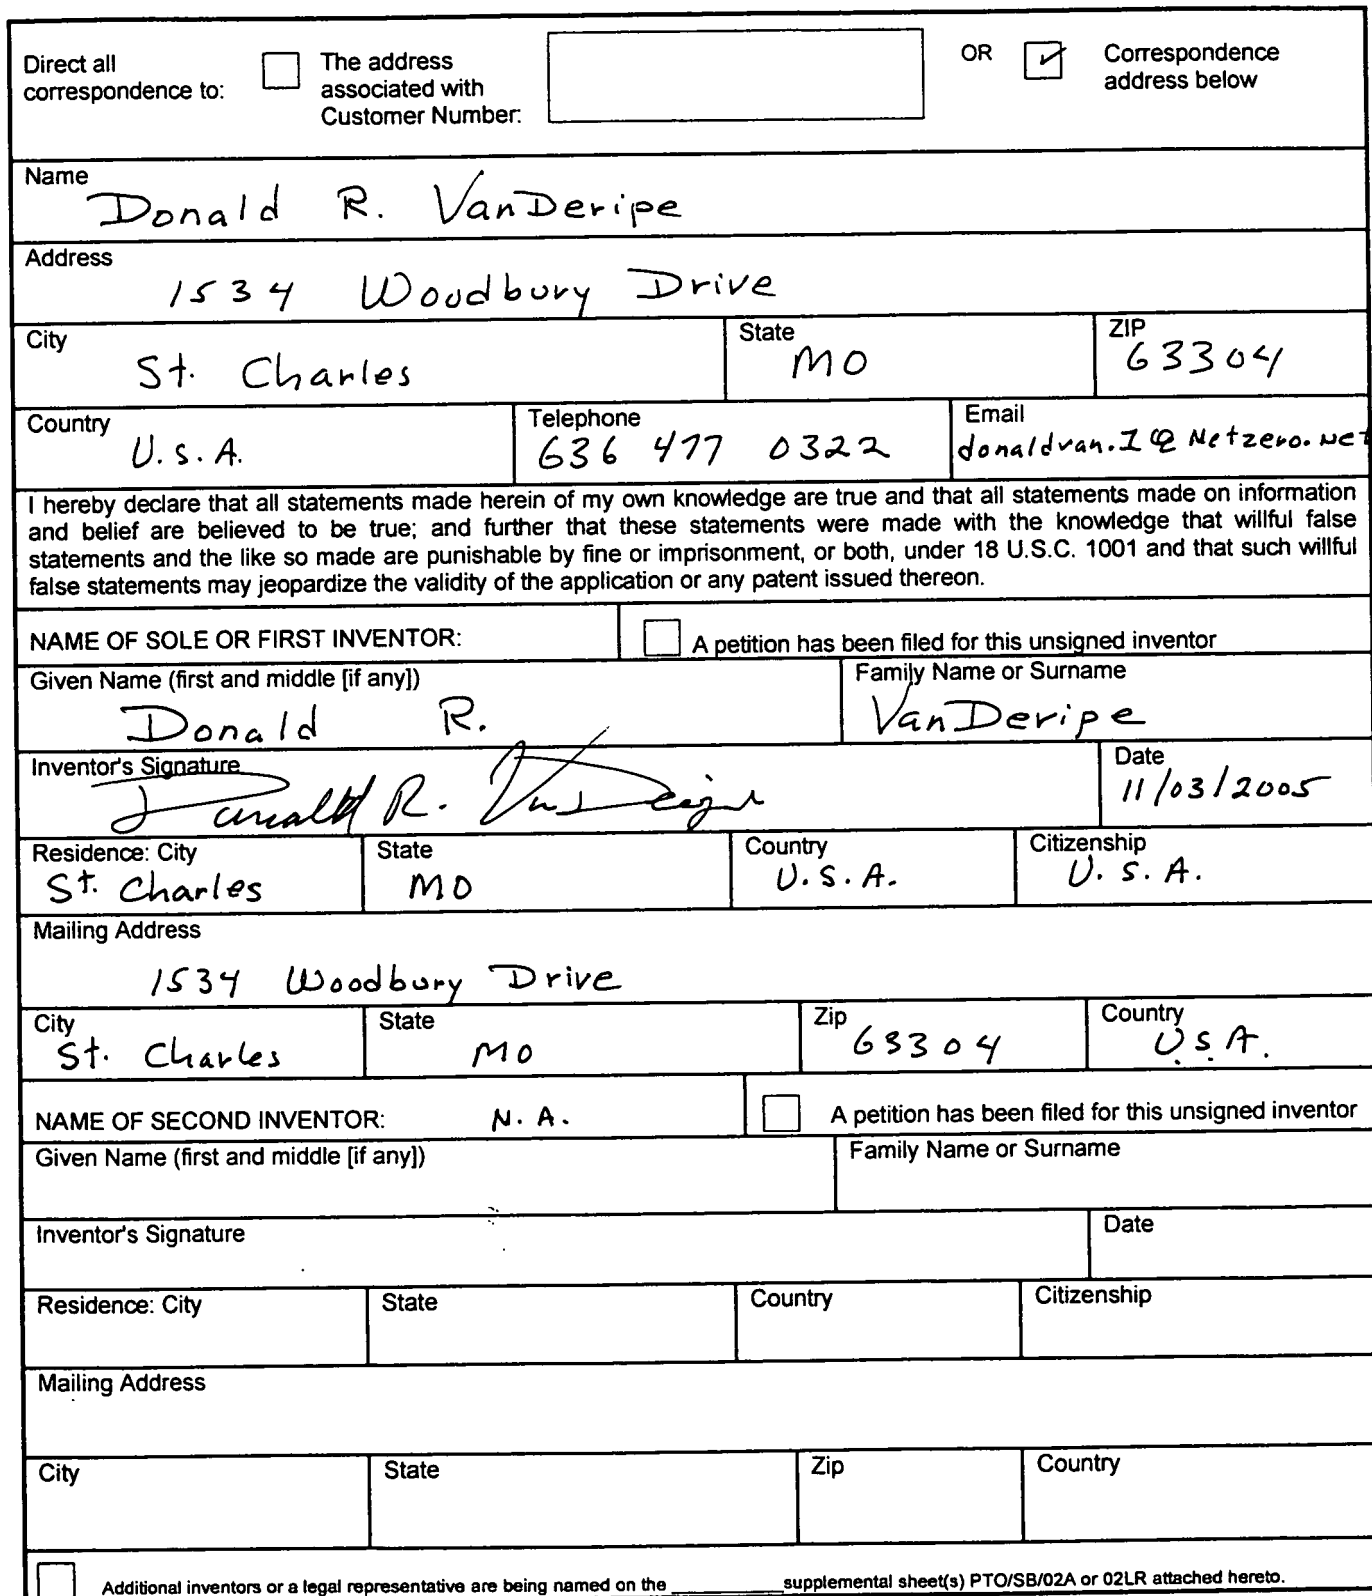 Direct all correspondence to:
The address associated with Customer Number:
OR
Correspondence address below
Name
Donald R. VanDeripe
Address
1534 Woodbury Drive
City
St. Charles
State
MO
ZIP
63304
Country
U.S.A.
Telephone
636 477 0322
Email
donaldvan.I@Netzero.net
I hereby declare that all statements made herein of my own knowledge are true and that all statements made on information
and belief are believed to be true; and further that these statements were made with the knowledge that willful false
statements and the like so made are punishable by fine or imprisonment, or both, under 18 U.S.C. 1001 and that such willful
false statements may jeopardize the validity of the application or any patent issued thereon.
NAME OF SOLE OR FIRST INVENTOR:
A petition has been filed for this unsigned inventor
Given Name (first and middle [if any])
Donald R.
Family Name or Surname
VanDeripe
Inventor's Signature
Donald R. VanDeripe
Date
11/03/2005
Residence: City
St. Charles
State
MO
Country
U.S.A.
Citizenship
U.S.A.
Mailing Address
1534 Woodbury Drive
City
St. Charles
State
MO
Zip
63304
Country
U.S.A.
NAME OF SECOND INVENTOR: N.A.
A petition has been filed for this unsigned inventor
Given Name (first and middle [if any])
Family Name or Surname
Inventor's Signature
Date
Residence: City
State
Country
Citizenship
Mailing Address
City
State
Zip
Country
Additional inventors or a legal representative are being named on the ________ supplemental sheet(s) PTO/SB/02A or 02LR attached hereto.